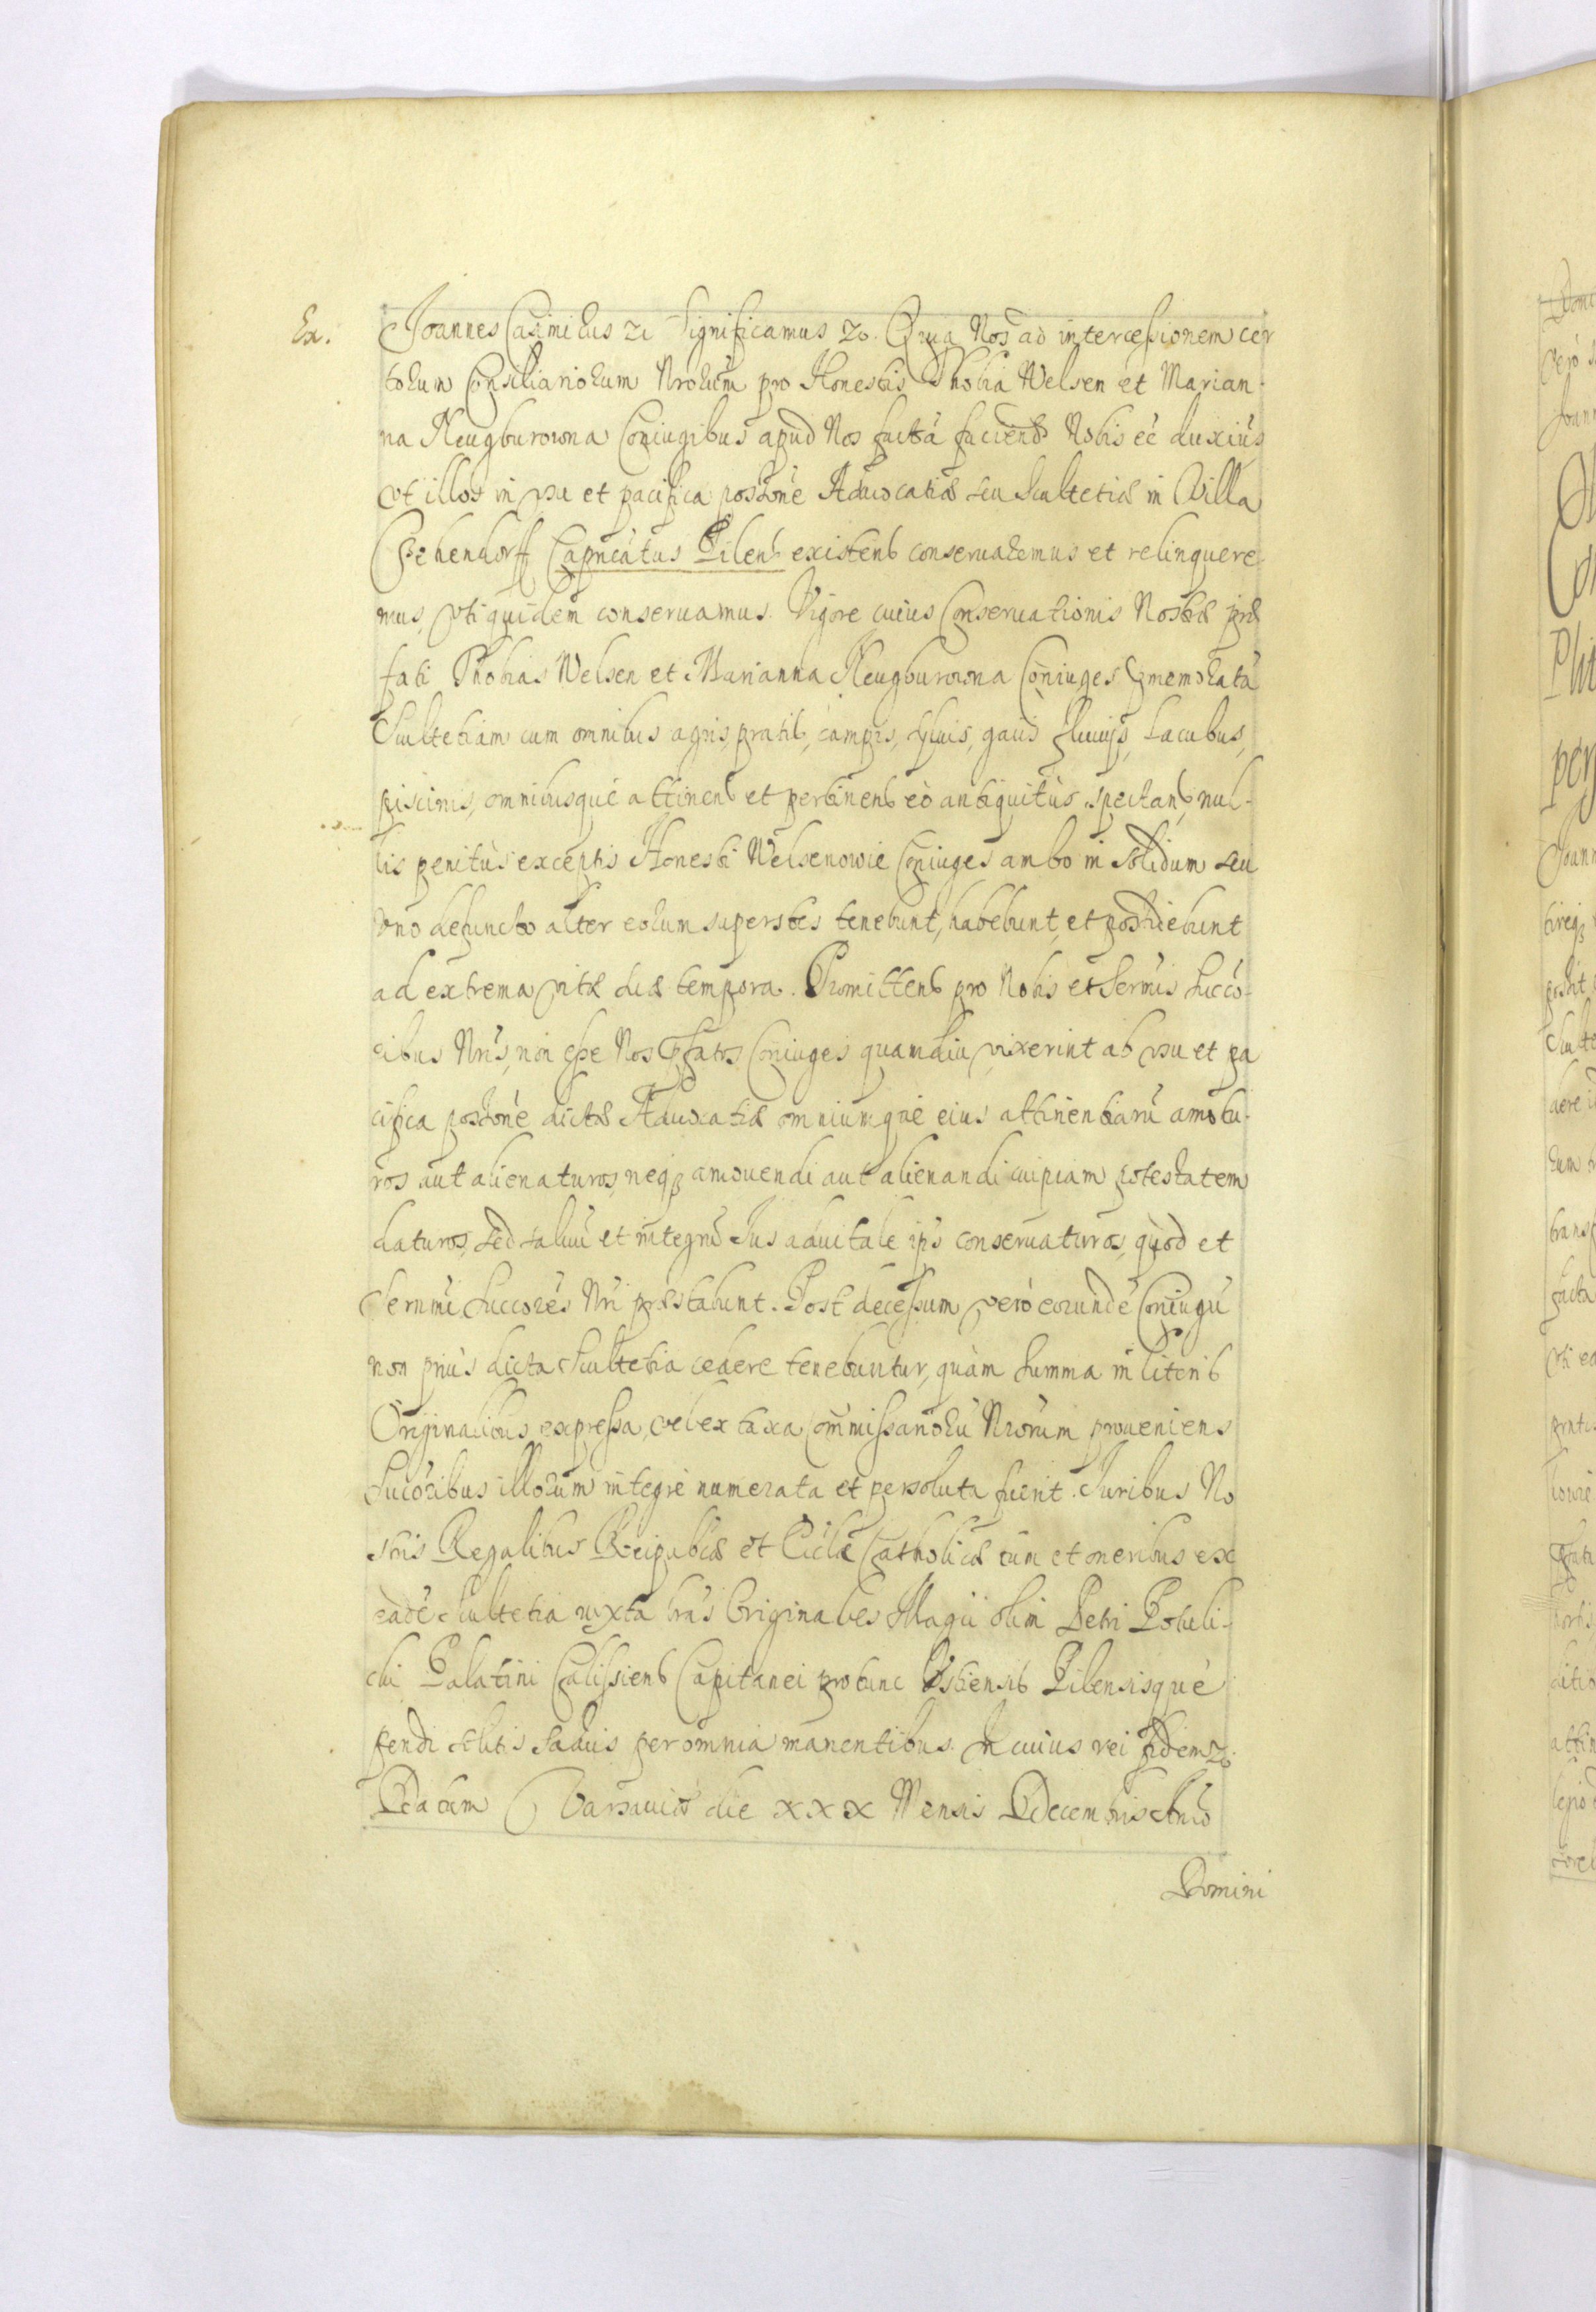 Ex. Joannes Casimirus etc Significamus etc. Quia Nos ad intercessionem cer
torum Consiliariorum Nrorum pro Honestis Thobia Welsen et Marian-
na Neugburowna Coniugibus apud Nos factã faciend Nobis eẽ duxim9,
vt illos in vsu et pacifica possione Aduocatiæ seu Scultetiæ in Villa
Czehendorff Capneatus Pilens existens conseruaremus et relinquere
mus, vti quidem conseruamus. Vigore cuius Conseruationis Nostræ præ
fati Thobias Welsen et Marianna Neugburowna Coniuges Commemoratã
Scultetiam cum omnibus agris, pratis, campis, syluis, gaiis fluuijs, Lacubus,
piscinis, omnibusque attinens et pertinens eò antiquitùs spectans, nul-
lis penitùs exceptis Honesti Welsenowie Coniuges ambo in solidum seu
vno defuncto alter eorum superstes tenebunt, habebunt, et possidebunt
ad extrema vitæ suæ tempora. Promittens pro Nobis et Sermis Succo-
ribus Nris, non esse Nos Pfatos Coniuges quamdiu vixerint ab vsu et pa
cifica possione dictæ Aduocatiæ omniumque eius attinentiarũ amotu-
ros aut alienaturos, neq3 amouendi aut alienandi cuipiam potestatem
daturos, sed saluũ et integrũ Ius aduitale ipis conseruaturos, quod et
Sermi Succores Nri præstabunt. Post decessum verò eorundẽ Coniugũ
non priùs dicta Scultetia cedere tenebuntur, quàm summa in literis
Originalibus expressa, vel ex taxa Commissariorũ Nrorum proueniens
Sucoribus illorum integrè numerata et persoluta fuerit. Iuribus No
stris Regalibus Reipublcæ et Ecclæ Catholicæ tum et oneribus ex
eadẽ Scultetia iuxta lras Originales Magci olim Petri Potuli-
cki Palatini Calissiens Capitanei protunc Vstiensis Pilensisque
pendi solitis saluis per omnia manentibus. In cuius rei fidem etc.
Datum Varsauiæ die XXX Mensis Decembris Anno
Domini